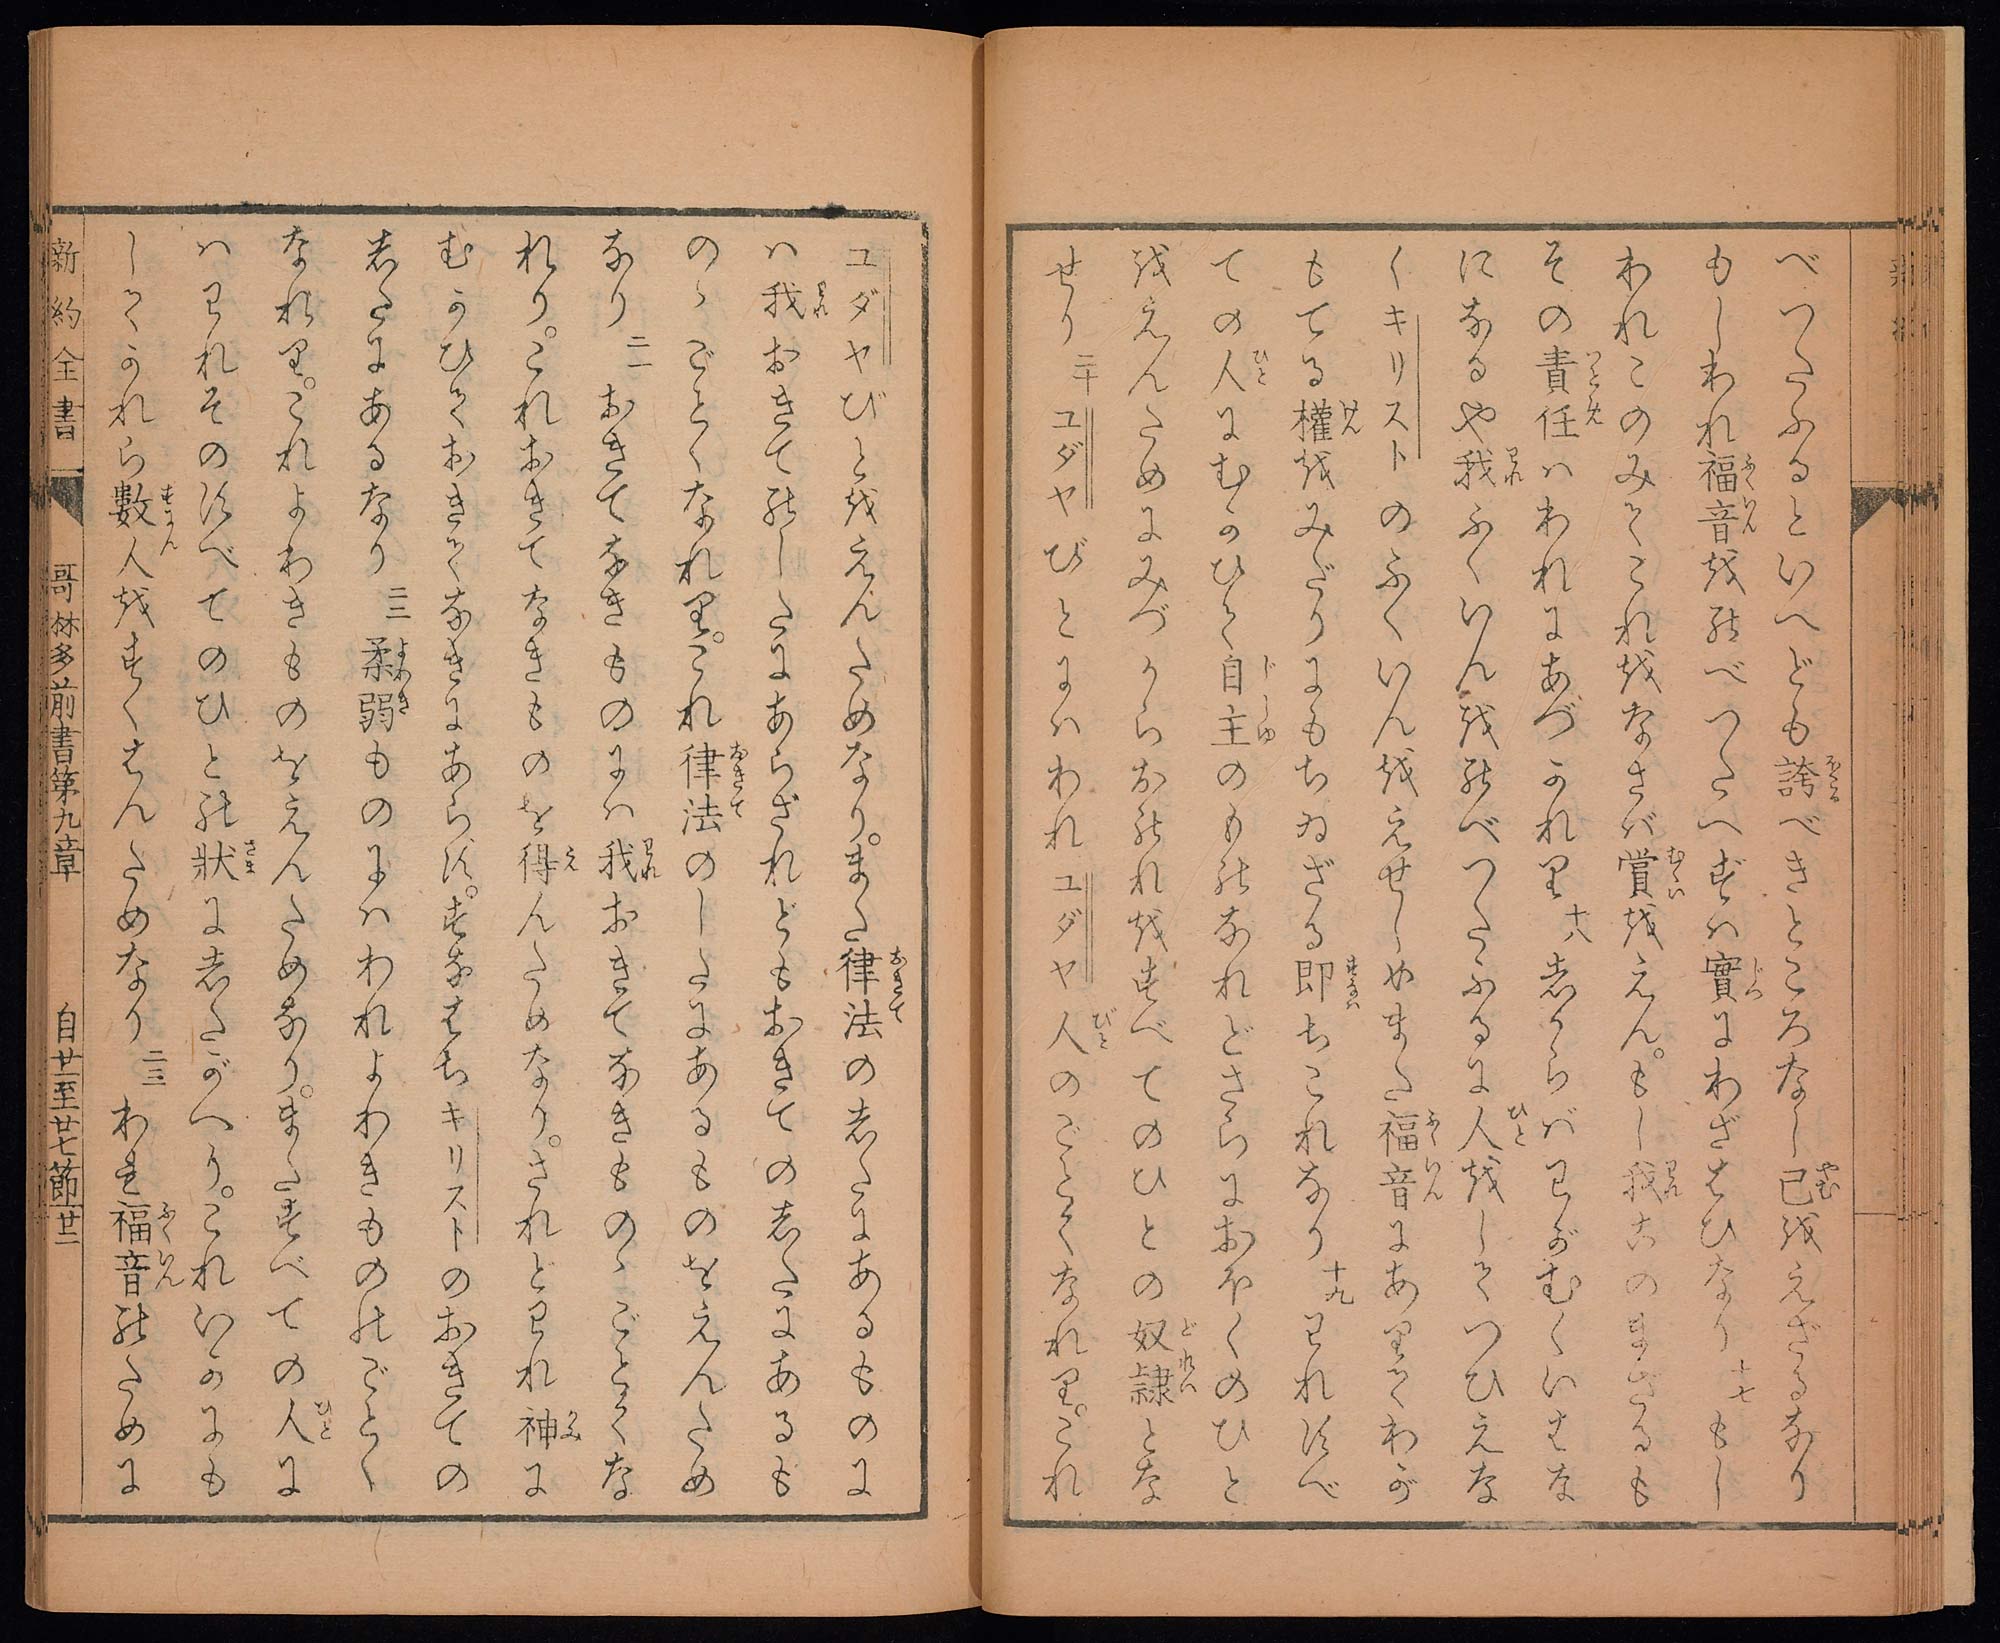 べつたふるといへども誇べきところなし已をえざるなり
もしわれ福音をのべつたへずハ實にわざはひなり 十七 もし
われこのみてこれをなさバ賞をえん。もし我このまざるも
その責任ハわれにあづかれり 十八 しからバわがむくいはな
になるや我ふくいんをのべつたふるに人をしてつひえな
くキリストのふくいんをえせしめまた福音にありてわが
もてる權をみだりにもちゐざる即ちこれなり 十九 われすべ
ての人にむかひて自主のものなれどさらにおほくのひと
をえんためにみづからおのれをすべてのひとの奴隷とな
せり 二十 ユダヤびとにハわれユダヤ人のごとくなれり。これ
ユダヤびとをえんためなり。また律法のしたにあるものに
ハ我おきてのしたにあらざれどもおきてのしたにあるも
のゝごとくなれり。これ律法のしたにあるものをえんため
なり 二一 おきてなきものにハ我おきてなきものゝごとくな
れり。これおきてなきものを得んためなり。されどわれ神に
むかひておきてなきにあらず。すなはちキリストのおきての
したにあるなり 二二 柔弱ものにハわれよわきもののごとく
なれり。これよわきものをえんためなり。またすべての人に
ハわれそのすべてのひとの狀にしたがへり。これいかにも
してかれら數人をすくはんためなり 二三 われ福音のために
新約全書 哥林多前書第九章 自廿一至廿七節 廿二